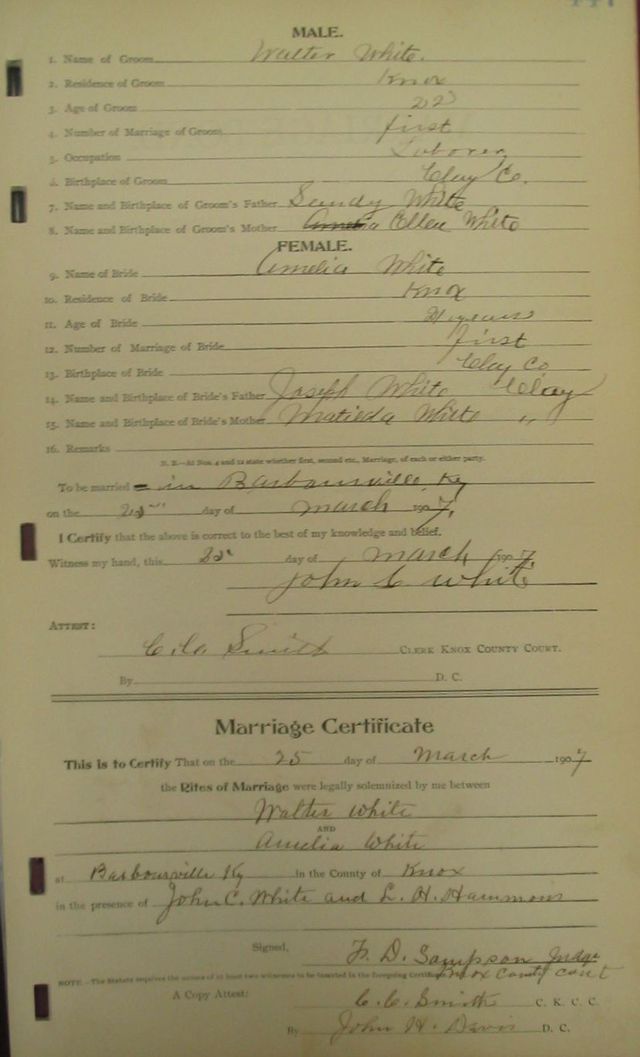 447
MALE.
1. Name of Groom Walter White.
2. Residence of Groom Knox
3. Age of Groom 22
4. Number of Marriage of Groom first
5. Occupation Laborer
6. Birthplace of Groom Clay Co.
7. Name and Birthplace of Groom's Father Sandy White
8. Name and Birthplace of Groom's Mother Ellen White
FEMALE.
9. Name of Bride Amelia White
10. Residence of Bride Knox
11. Age of Bride 21 years
12. Number of Marriage of Bride first
13. Birthplace of Bride Clay Co
14. Name and Birthplace of Bride's Father Joseph White Clay
15. Name and Birthplace of Bride's Mother Matilda White "
16. Remarks
N. B.—At Nos. 4 and 12 state whether first, second etc., Marriage, of each or either party.
To be married in Barbourville, Ky
on the 25" day of march 1907,
I Certify that the above is correct to the best of my knowledge and belief.
Witness my hand, this 25 day of march, 1907
John C White
ATTEST:
Smith CLERK KNOX COUNTY COURT.
By D. C.
Marriage Certificate
This is to Certify That on the 25 day of March 1907
the Rites of Marriage were legally solemnized by me between
Walter White
AND
Amelia White
at Barbourville Ky in the County of Knox
in the presence of John C. White and L. H. Hammons
Signed, F. D. Sampson Judge
Knox County Court
NOTE.—The Statute requires the names of at least two witnesses to be inserted in the foregoing Certificate.
A Copy Attest: C. C. Smith C. K. C. C.
By John H. Davis D. C.